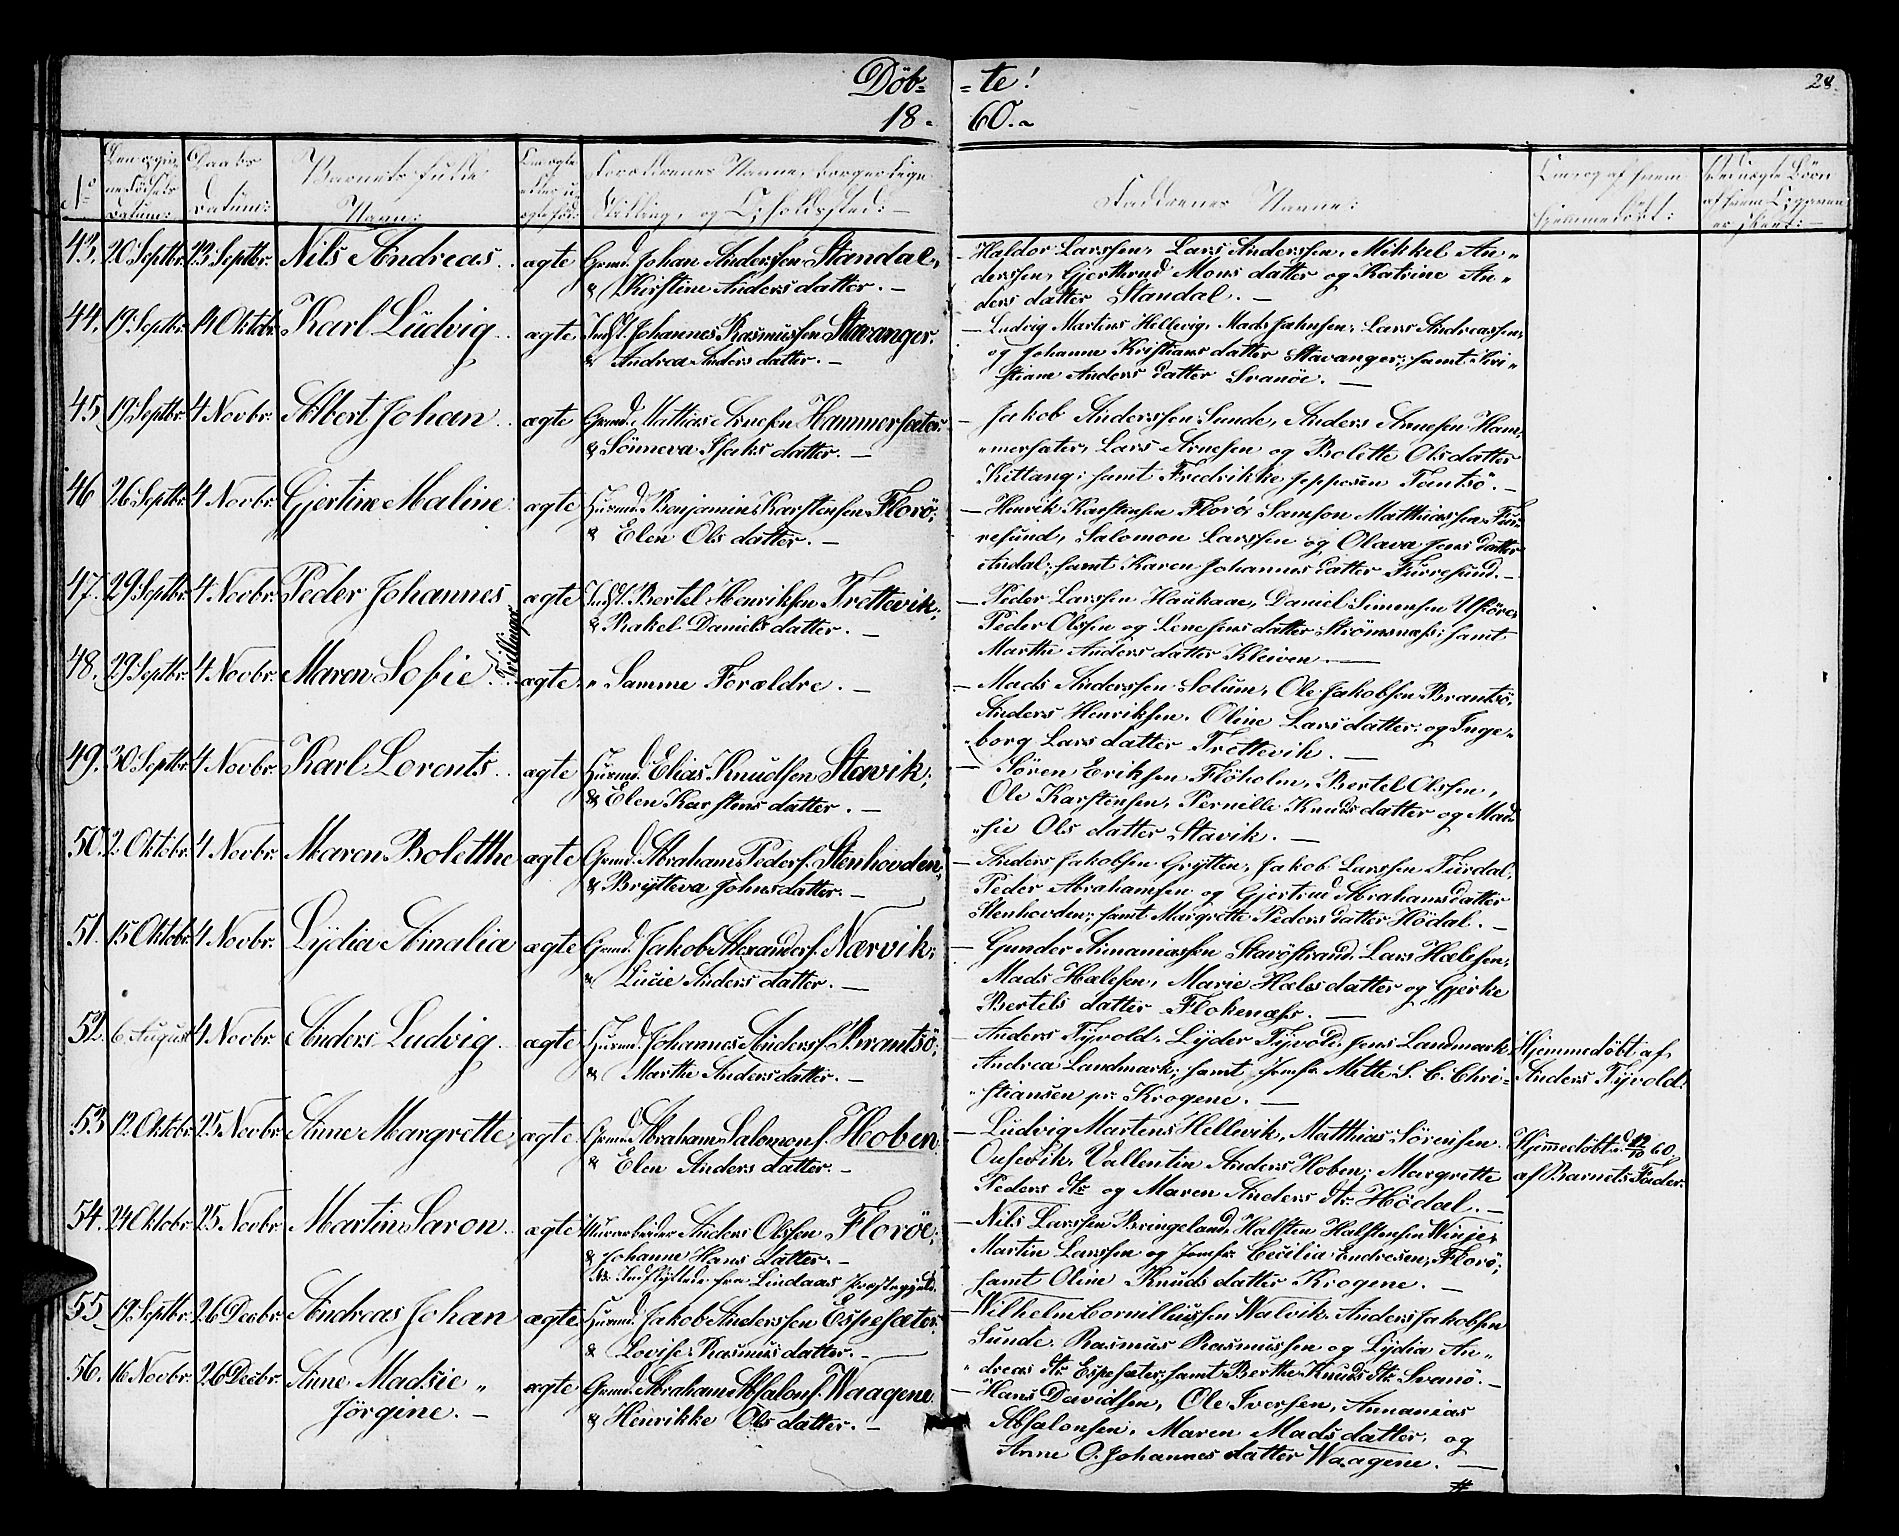 Döb= =te!
18. 60.
28.
No
Den opgivne Fødsels Datum:
Daabs Datum:
Barnets fulde Navn:
Om ægte eller uægte fød:
Forældrenes Navne, borgerlige Stilling, og Opholdssted:
Faddrenes Navne:
43. 20 Septbr. 23 Septbr. Nils Andreas ægte Grmd. Johan Anderssen Standal,
& Kirstine Anders datter. —
Haldor Larssen, Lars Anderssen, Mikkel An-
derssen, Gjerthrud Mons datter og Katrine An-
ders datter Standal. —
44. 19. Septbr. 14 Oktobr. Karl Ludvig ægte Indst. Johannes Rasmussen Stavanger.
& Andrea Anders datter. —
Ludvig Martins Hellevig, Mads Jahnsen, Lars Andreassen,
og Johanne Kristians datter Stavanger; samt Kri-
stiane Anders datter Svanöe. —
45 19. Septbr. 4 Novbr. Albert Johan ægte Grmd. Mathias Arnesen Hammersæter.
& Sönneva Isaks datter. —
Jakob Anderssen Sunde, Anders Arnesen Ham-
mersæter, Lars Arnesen og Bolette Olsdatter
Kittang; samt Fredrikke Jeppesen Tontsö. —
46 26 Septbr. 4 Novbr. Gjertine Maline ægte Huusmd. Benjamin Karstensen Florö;
& Elen Ols datter. —
Henrik Karstensen Florö, Samson Matthiassen Fur-
resund, Salomon Larssen og Olava Jens datter
Andal; samt Karen Johannes datter Furresund. —
47. 29 Septbr. 4 Novbr. Peder Johannes ægte Indst. Bertel Henriksen Trettevik.
& Rakel Daniels datter. —
Peder Larssen Haukaae, Daniel Simonsen
Peder Olssen og Lene Jens datter Strömsnæss; samt
Marthe Anders datter Kleiven. —
Tvillinger
48. 29 Septbr. 4 Novbr. Maren Sofie ægte " Samme Forældre. —
Mads Anderssen Solum, Ole Jakobsen Brantsö.
Anders Henriksen. Oline Lars datter og Inge-
borg Lars datter Trettevik. —
49. 30 Septbr. 4 Novbr. Karl Lorents ægte Huusmd. Elias Knudsen Stavik;
& Elen Karstens datter. —
Sören Eriksen Flöholm, Bertel Olssen,
Ole Karstensen, Pernille Knuds datter og Mad-
sie Ols datter Stavik. —
50. 2. Oktobr. 4 Novbr. Maren Boletthe ægte Grmd. Abraham Peders. Stenhovden;
& Brytteva Johns datter. —
Anders Jakobsen Grytten, Jakob Larssen Furdal,
Peder Abrahamsen og Gjertrud Abrahams datter
Stenhovden; samt Margrethe Peders datter Hödal. —
51. 15 Oktobr. 4 Novbr. Lydia Amalia ægte Grmd. Jakob Alexanders. Nærvik;
& Lucie Anders datter. —
Gunder Annaniassen Stavöstrand. Lars Hælesen,
Mads Hælesen, Marie Hæles datter og Gjerke
Bertels datter Flokenæss. —
52. 6 August 4 Novbr. Anders Ludvig ægte Huusmd. Johannes Anders. Brantsö;
& Marthe Anders datter. —
Anders Tyvold, Lyder Tyvold, Jens Landmark
Andrea Landmark; samt Jomfr. Mette S. C. Chri-
stiansen pr. Krogene. —
Hjemmedöbt af
Anders Tyvold.
53 12. Oktobr. 25 Novbr. Anne Margrette ægte Grmd. Abraham Salomons. Hoben
& Elen Anders datter. —
Ludvig Martens Hellevik, Matthias Sörensen
Ousevik, Vallentin Anders Hoben; Margrette
Peders dtr. og Maren Anders dtr. Hödal. —
Hjemmedöbt d. 12/10 60.
af Barnets Fader.
54. 24 Oktobr. 25 Novbr. Martin Saron ægte Murarbeider Anders Olssen Floröe;
& Johanne Hans datter. —
NB. Indflyttede fra Lindaas Præstegjeld.
Nils Larssen Bringeland, Halsten Halstensen Winje;
Martin Larssen og Jomfr. Cecilia Endresen, Florö;
samt Oline Knuds datter Krogene. —
55. 19. Septbr. 26 Decbr. Andreas Johan ægte Huusmd. Jakob Anderssen Espesæter.
& Lovise Rasmus datter. —
Wilhelm Cornilliussen Walvik. Anders Jakobsen
Sunde. Rasmus Rasmussen og Lydia An-
dreas dtr. Espesæter; samt Berthe Knuds dtr. Svanö. —
56. 16 Novbr. 26 Decbr. Anne Madsie "
Jörgine. —
ægte Grmd. Abraham Absalons. Waagene
& Henrikke Ols datter. —
Hans Davidsen, Ole Iversen, Annanias
Absalonsen. Maren Mads datter, og
Anne O. Johannes datter Waagene. —
#